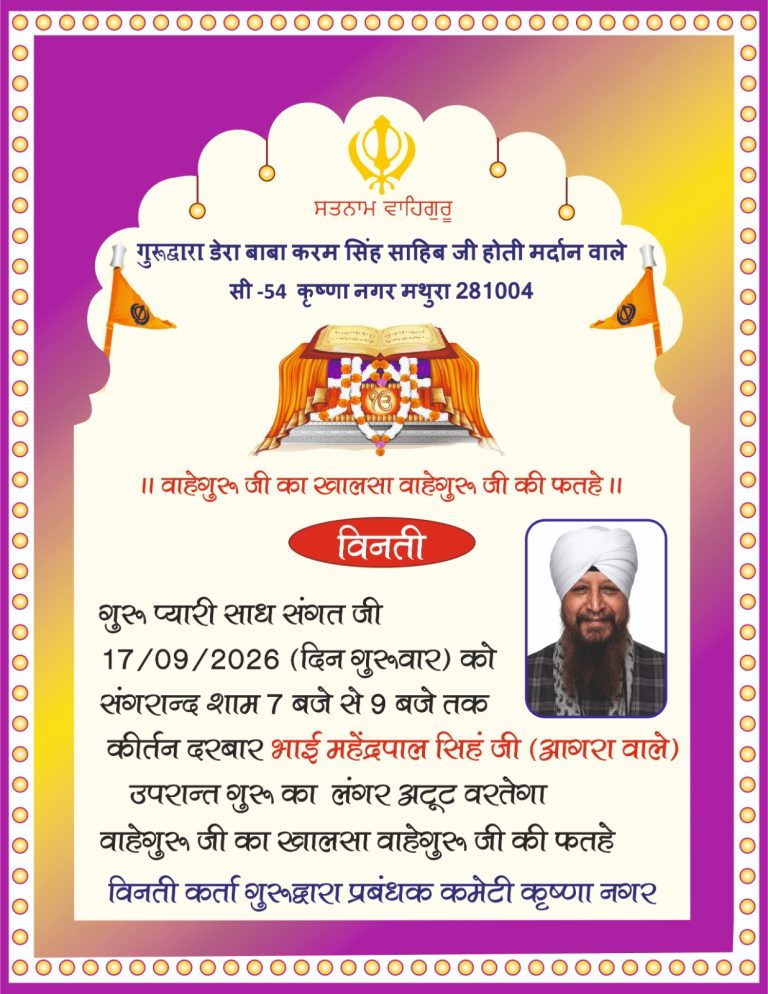 ਸਤਨਾਮ ਵਾਹਿਗੁਰੂ
गुरूद्वारा डेरा बाबा करम सिंह साहिब जी होती मर्दान वाले
सी -54 कृष्णा नगर मथुरा 281004
ੴ
।। वाहेगुरू जी का खालसा वाहेगुरू जी की फतहे ।।
विनती
गुरू प्यारी साध संगत जी
17/09/2026 (दिन गुरूवार) को
संगरान्द शाम 7 बजे से 9 बजे तक
कीर्तन दरबार भाई महेंद्रपाल सिहं जी (आगरा वाले)
उपरान्त गुरू का लंगर अटूट वरतेगा
वाहेगुरू जी का खालसा वाहेगुरू जी की फतहे
विनती कर्ता गुरूद्वारा प्रबंधक कमेटी कृष्णा नगर